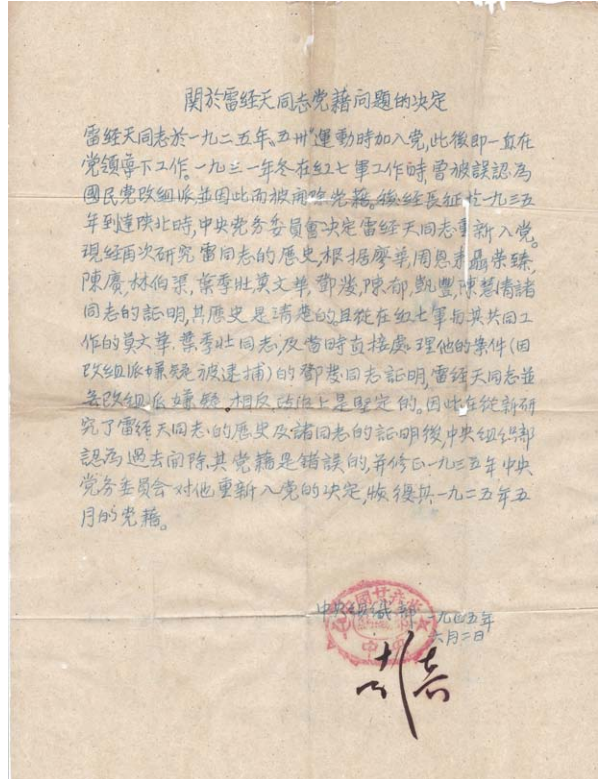 関於雷经天同志党藉问题的决定
雷经天同志於一九二五年“五卅”運動時加入党,此後即一直在
党領導下工作。一九三一年冬在红七軍工作時,曾被誤認為
國民党改組派並因此而被開除党藉。後经長征於一九三五
年到達陕北時,中央党务委員會决定雷经天同志重新入党。
現经再次研究雷同志的歷史,根据廖华,周恩来聶荣臻,
陳賡,林伯渠,葉季壮莫文华,鄧发,陳郁,凱豐,陳慧清諸
同志的証明,其歷史是清楚的,且從在红七軍与其共同工
作的莫文华.葉季壮同志,及當時直接處理他的案件(因
改组派嫌疑被逮捕)的鄧发同志証明,雷经天同志並
無改组派嫌疑,相反,政治上是堅定的。因此在從新研
究了雷经天同志的歷史及諸同志的証明後,中央组织部
認為過去開除其党藉是錯誤的,并修正一九三五年中央
党务委員會对他重新入党的决定,恢復其一九二五年五
月的党藉。
中央组织部 一九四五年
六月二日